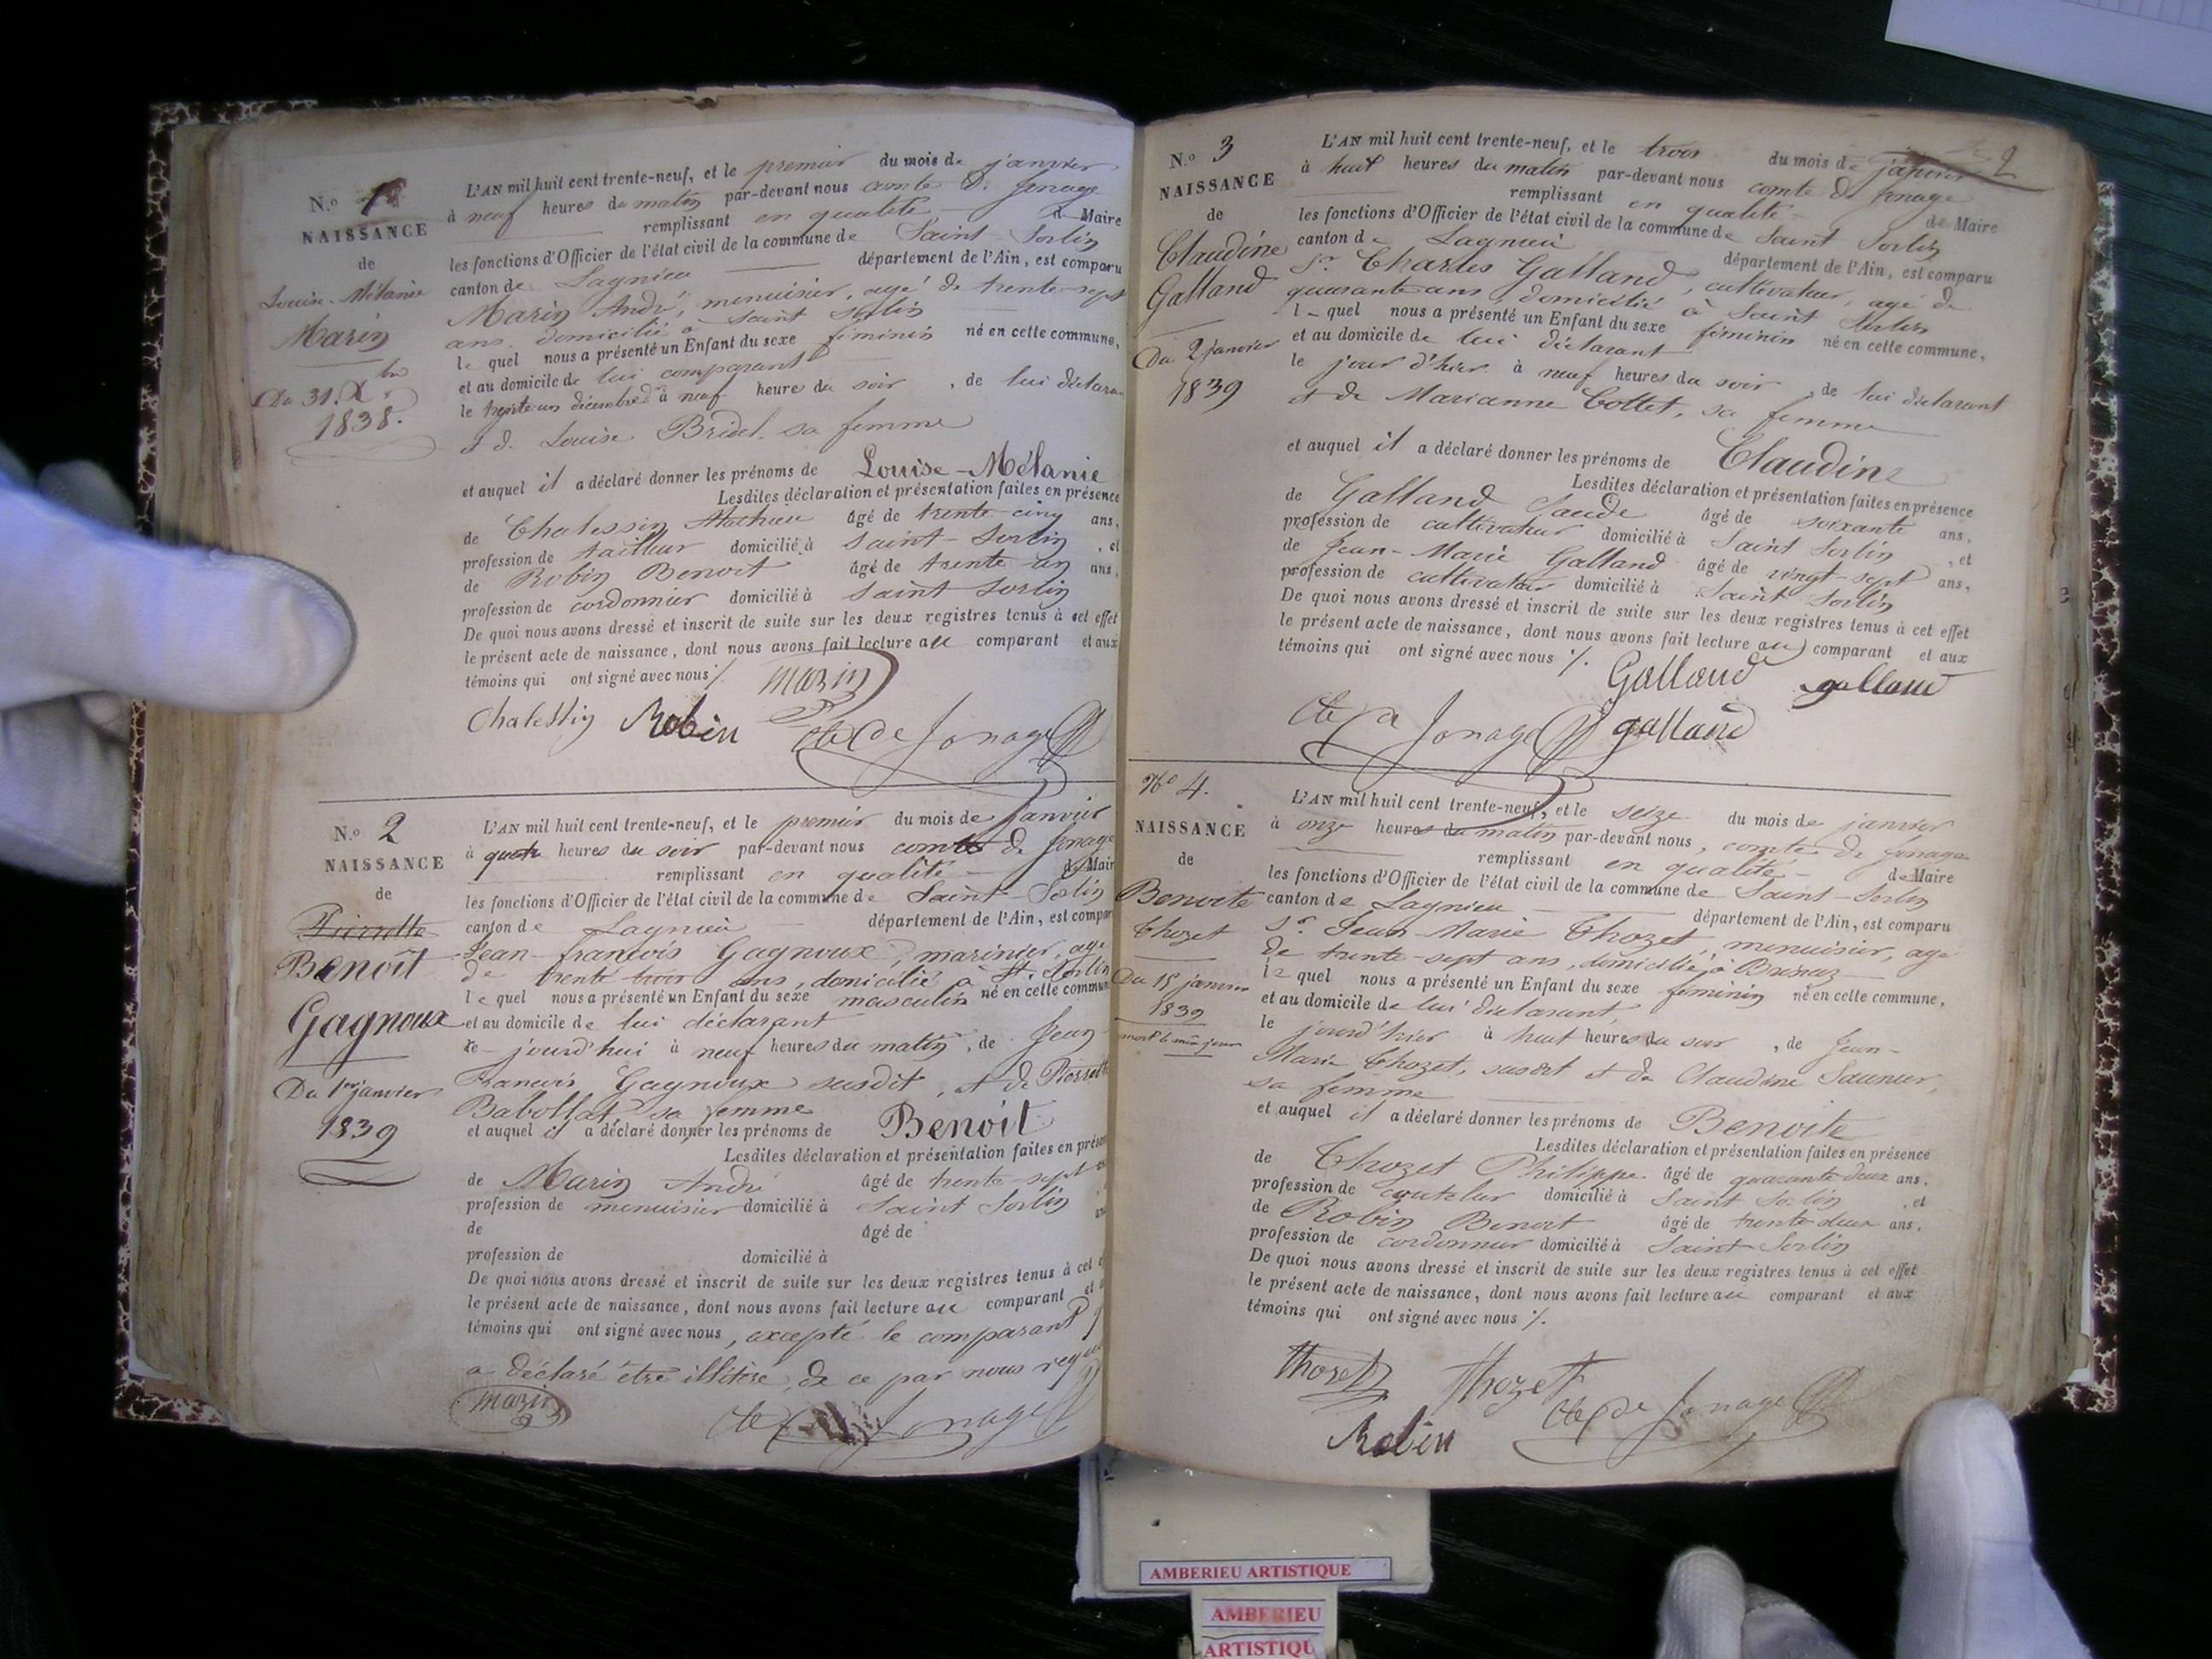 N.º 1
NAISSANCE
de
Louise-Mélanie
Marin
Du 31. Xbre
1838.
L'AN mil huit cent trente-neuf, et le premier du mois de janvier
à neuf heures du matin par-devant nous comte de Jonage
remplissant en qualité de Maire
les fonctions d'Officier de l'état civil de la commune de Saint-Sorlin
canton de Lagnieu département de l'Ain, est comparu
Marin André, menuisier, agé de trente-sept
ans, domicilié à Saint Sorlin
le quel nous a présenté un Enfant du sexe féminin né en cette commune,
et au domicile de lui comparant
le trente un décembre à neuf heures du soir, de lui déclarant
et de Louise Bridel, sa femme
et auquel il a déclaré donner les prénoms de Louise-Mélanie
Lesdites déclaration et présentation faites en présence
de Chalessin Mathieu âgé de trente-cinq ans,
profession de tailleur domicilié à Saint-Sorlin, et
de Robin Benoit âgé de trente un ans,
profession de cordonnier domicilié à Saint Sorlin
De quoi nous avons dressé et inscrit de suite sur les deux registres tenus à cet effet
le présent acte de naissance, dont nous avons fait lecture au comparant et aux
témoins qui ont signé avec nous ./.
Marin
Chalessin Robin Cte de Jonage
N.º 2
NAISSANCE
de
Pierrette
Benoît
Gagnoux
Du 1er janvier
1839
L'AN mil huit cent trente-neuf, et le premier du mois de janvier
à quatre heures du soir par-devant nous comte de Jonage
remplissant en qualité de Mair
les fonctions d'Officier de l'état civil de la commune de Saint-Sorlin
canton de Lagnieu département de l'Ain, est compar
Jean-françois Gagnoux, marinier, age
de trente trois ans, domicilié à St. Sorlin
le quel nous a présenté un Enfant du sexe masculin né en cette commun
et au domicile de lui déclarant
le jourd'hui à neuf heures du matin, de Jean
francois Gagnoux susdit, et de Pierrette
Babollat, sa femme
et auquel il a déclaré donner les prénoms de Benoît
Lesdites déclaration et présentation faites en prése
de Marin André âgé de trente-sept
profession de menuisier domicilié à Saint Sorlin
de âgé de
profession de domicilié à
De quoi nous avons dressé et inscrit de suite sur les deux registres tenus à cet e
le présent acte de naissance, dont nous avons fait lecture au comparant et a
témoins qui ont signé avec nous, excepté le comparant q
a déclaré être illétéré, de ce par nous requ
Marin Cte de Jonage
2
N.º 3
NAISSANCE
de
Claudine
Galland
Du 2 janvier
1839
L'AN mil huit cent trente-neuf, et le trois du mois de janvier
à huit heures du matin par-devant nous comte de Jonage
remplissant en qualité de Maire
les fonctions d'Officier de l'état civil de la commune de Saint Sorlin
canton de Lagnieu département de l'Ain, est comparu
Sr. Charles Galland, cultivateur, agé de
quarante ans, domicilié à Saint Sorlin
l- quel nous a présenté un Enfant du sexe féminin né en cette commune,
et au domicile de lui déclarant
le jour d'hier à neuf heures du soir, de lui déclarant
et de Marianne Cottet, sa femme
et auquel il a déclaré donner les prénoms de Claudine
Lesdites déclaration et présentation faites en présence
de Galland âgé de soixante ans,
profession de cultivateur domicilié à Saint Sorlin, et
de Jean-Marie Galland âgé de vingt-sept ans,
profession de cultivateur domicilié à Saint Sorlin
De quoi nous avons dressé et inscrit de suite sur les deux registres tenus à cet effet
le présent acte de naissance, dont nous avons fait lecture au comparant et aux
témoins qui ont signé avec nous ./.
Galland galland
Cte de Jonage galland
Nº 4.
NAISSANCE
de
Benoite
Thozet
Du 15 janvier
1839
mort le même jour
L'AN mil huit cent trente-neuf, et le seize du mois de janvier
à onze heures du matin par-devant nous, comte de Jonage
remplissant en qualité de Maire
les fonctions d'Officier de l'état civil de la commune de Saint-Sorlin
canton de Lagnieu département de l'Ain, est comparu
Sr. Jean-Marie Thozet, menuisier, age
de trente-sept ans, domicilié à
le quel nous a présenté un Enfant du sexe féminin né en cette commune,
et au domicile de lui déclarant
le jourd'hier à huit heures du soir, de Jean-
Marie Thozet, susdit et de Claudine Saunier,
sa femme
et auquel il a déclaré donner les prénoms de Benoite
Lesdites déclaration et présentation faites en présence
de Thozet Philippe âgé de quarante deux ans,
profession de domicilié à Saint Sorlin, et
de Robin Benoit âgé de trente deux ans,
profession de cordonnier domicilié à Saint Sorlin
De quoi nous avons dressé et inscrit de suite sur les deux registres tenus à cet effet
le présent acte de naissance, dont nous avons fait lecture au comparant et aux
témoins qui ont signé avec nous ./.
Thozet Thozet
Robin Cte de Jonage
AMBERIEU ARTISTIQUE
AMBERIEU
ARTISTIQU